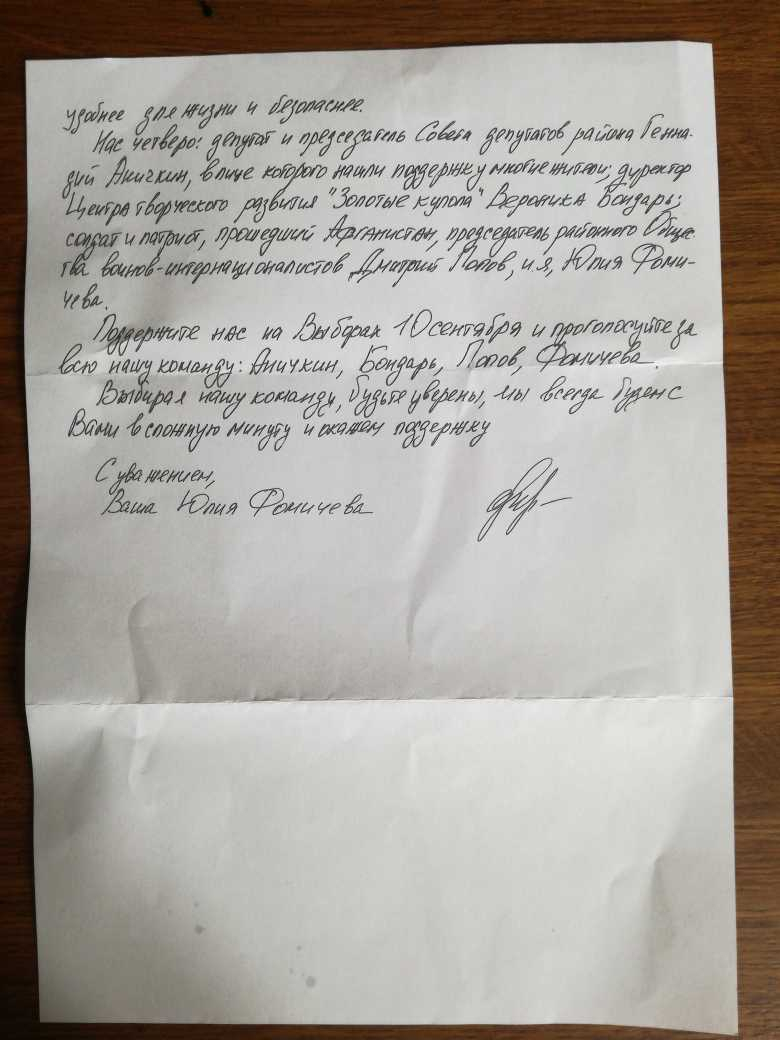 удобнее для жизни и безопаснее.
Нас четверо: депутат и председатель Совета депутатов района Генна-
дий Аничкин, в лице которого нашли поддержку многие жители; директор
Центра творческого развития "Золотые купола" Вероника Бондарь;
солдат и патриот, прошедший Афганистан, председатель районного Общес-
тва воинов-интернационалистов Дмитрий Попов, и я, Юлия Фоми-
чева.
Поддержите нас на Выборах 10 сентября и проголосуйте за
всю нашу команду: Аничкин, Бондарь, Попов, Фомичева.
Выбирая нашу команду, будьте уверены, мы всегда будем с
Вами в сложную минуту и окажем поддержку
С уважением,
Ваша Юлия Фомичева